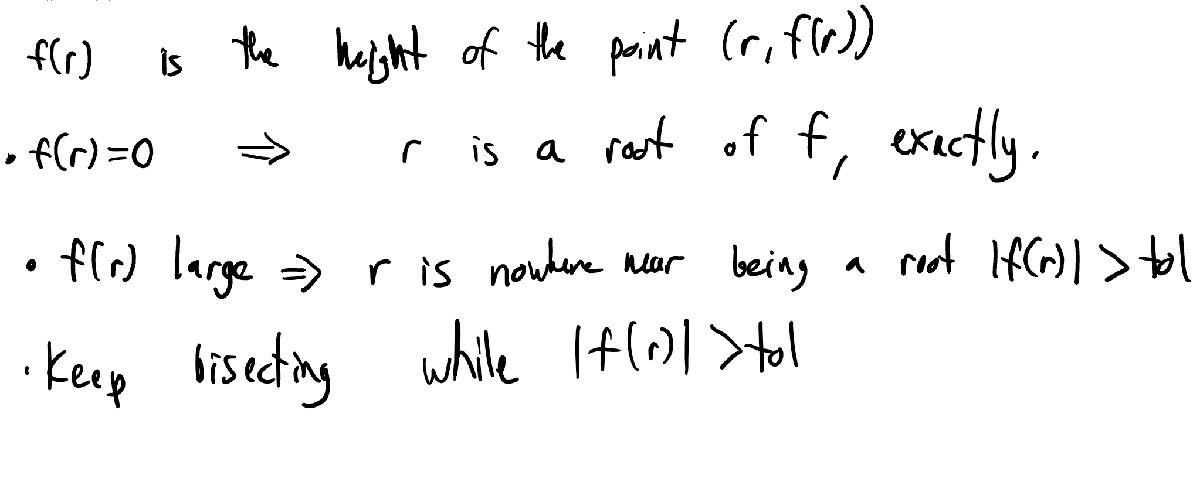 f(r) is the height of the point (r, f(r))
• f(r)=0 ⇒ r is a root of f, exactly.
• f(r) large ⇒ r is nowhere near being a root |f(r)| > tol
• Keep bisecting while |f(r)| > tol